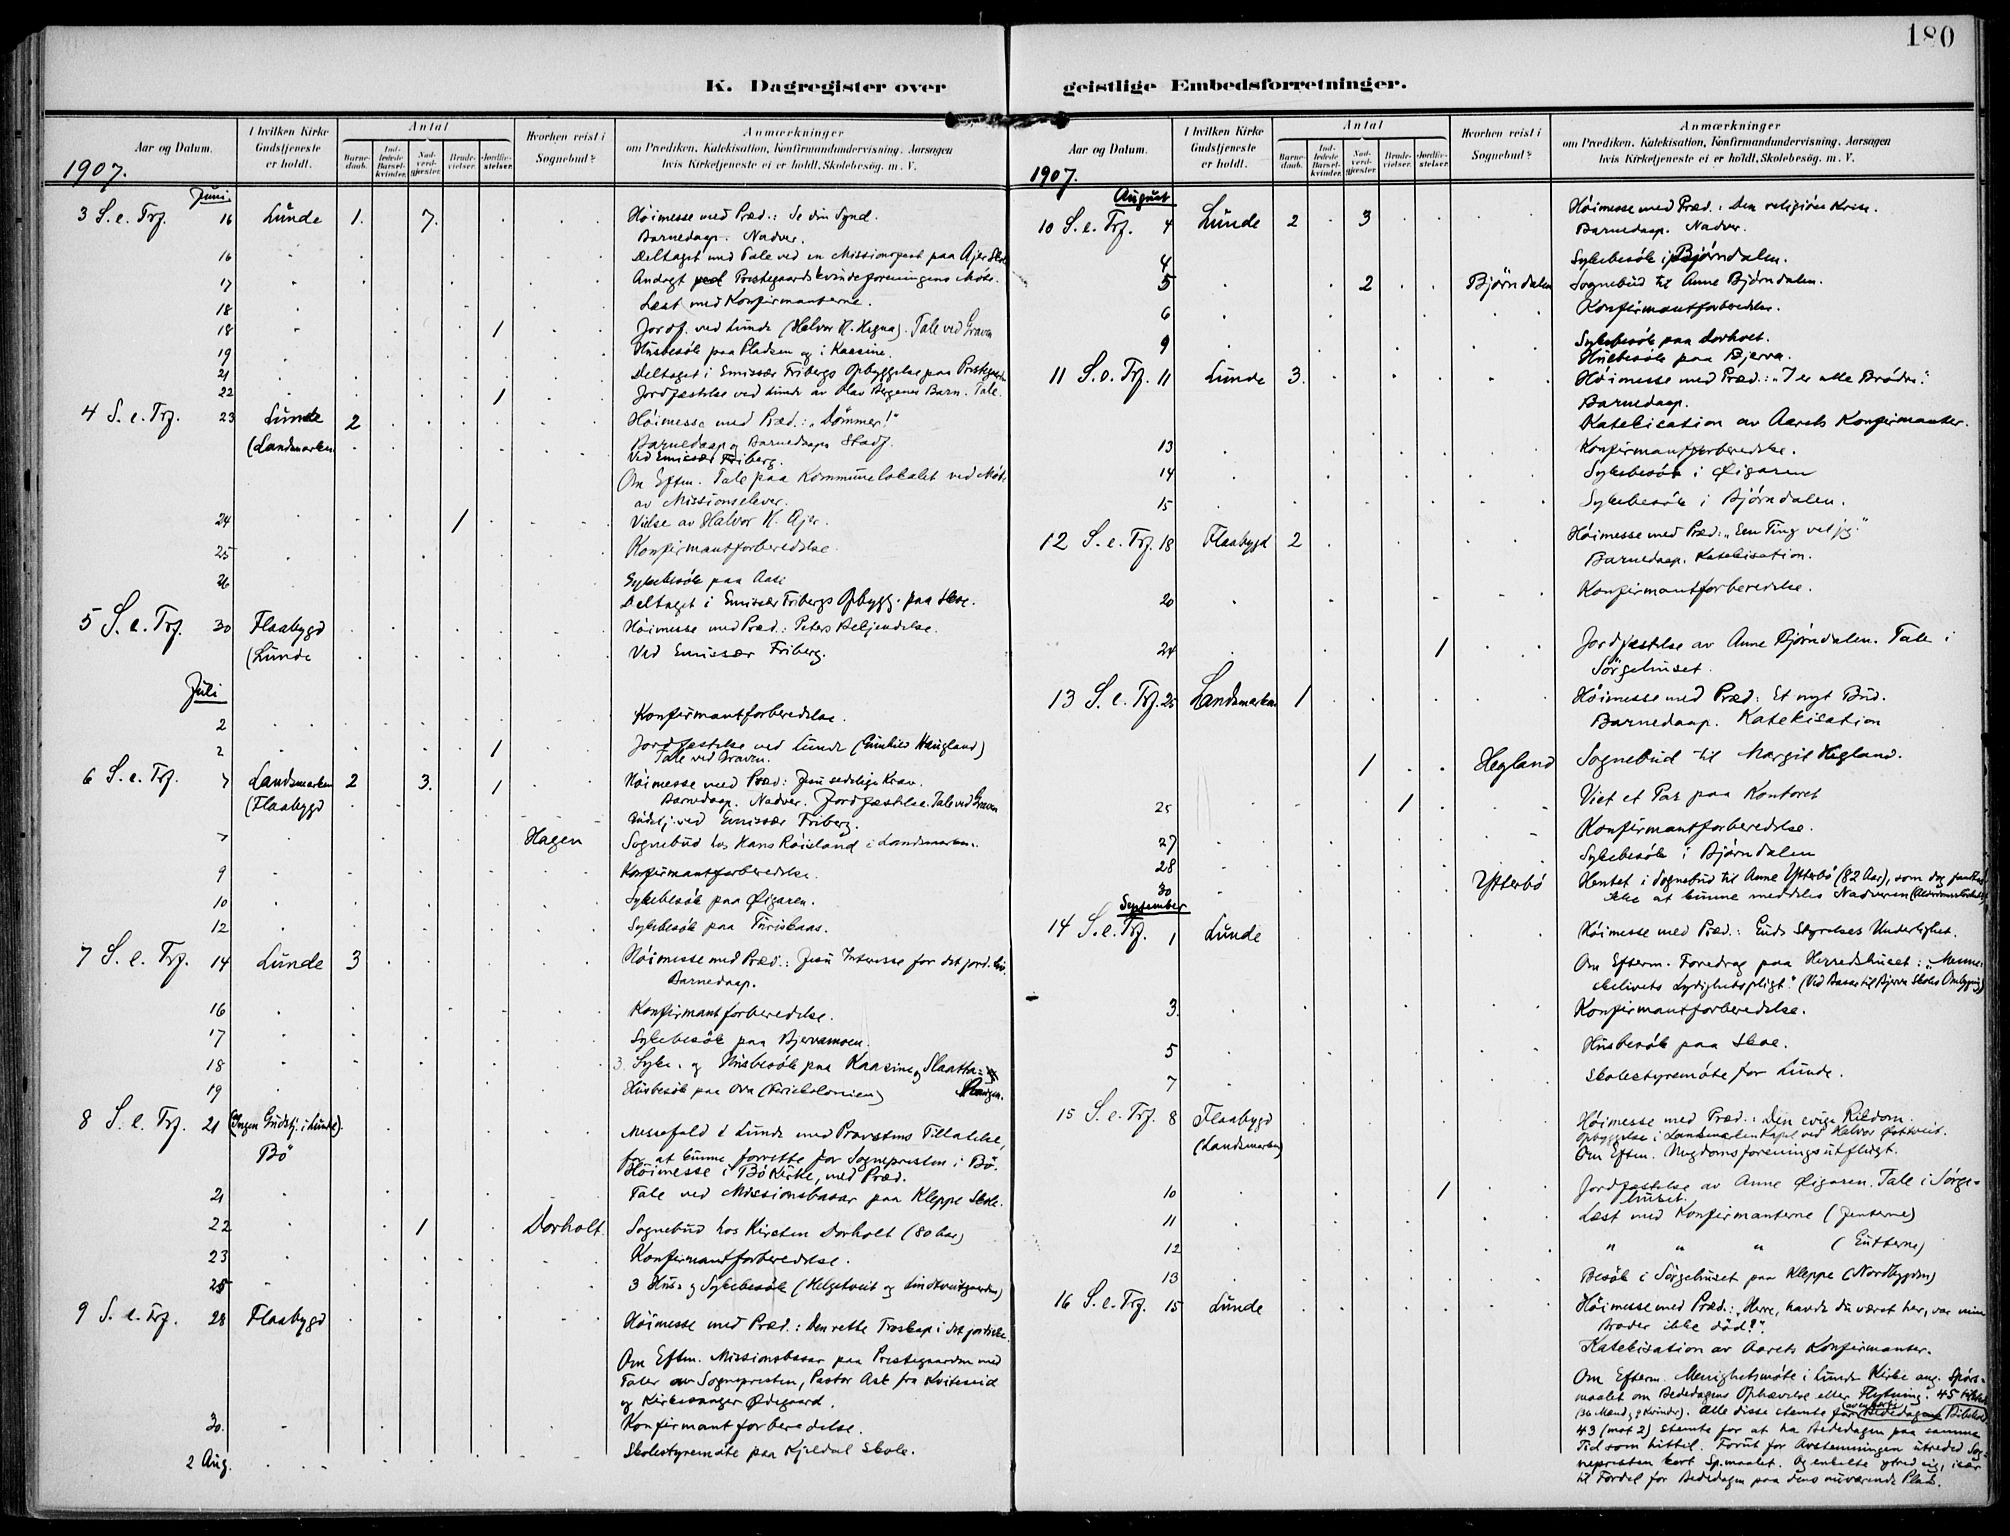 180
K. Dagregister over geistlige Embedsforretninger.
Aar og Datum.
I hvilken Kirke Gudstjeneste er holdt.
Antal
Barnedaab.
Indledede Barselkvinder.
Nadverdgjæster.
Brudevielser.
Jordfæstelser.
Hvorhen reist i Sognebud?
Anmærkninger
om Prædiken, Katekisation, Konfirmandundervisning, Aarsagen
hvis Kirketjeneste ei er holdt, Skolebesøg. m. V.
1907.
Juni
3 S. e. Trf. 16 Lunde 1. 7. Høimesse med Præd.: Se din Synd.
Barnedaap. Nadver.
16 Deltaget med Tale ved en Missionsfest paa Ajer Skole
17 Andagt ved Prestegaards kvindeforenings Møte.
18 Læst med Konfirmanterne.
18 1 Jordf. ved Lunde (Halvor K. Hegna). Tale ved Graven
19 Husbesøk paa Pladsen og i Kaasine.
21 Deltaget i Emissær Fribergs Opbyggelse paa Prestegaarden
22 1 Jordfæstelse ved Lunde av Olav Bergenes Barn. Tale.
4 S. e. Trf. 23 Lunde 2 Høimesse med Præd.: "Dømmer!"
(Landsmarken Barnedaap og Barnedaaps Stadf.
Ved Emissær Friberg.
Om Eftm. Tale paa Kommunelokalet ved Møte
av Missionselever.
24 1 Vielse av Halvor K. Ajer.
25 Konfirmantforberedelse.
26 Sykebesøk paa Aase
Deltaget i Emissær Fribergs Opbygg. paa Skoe.
5 S. e. Trf. 30 Flaabygd Høimesse med Præd.: Peters Bekjendelse.
(Lunde Ved Emissær Friberg.
Juli
2 Konfirmantforberedelse.
2 1 Jordfæstelse ved Lunde (Gunhild Haugland)
Tale ved Graven.
6 S. e. Trf. 7 Landsmarken 2 3. 1 Høimesse med Præd.: Jesu sedelige Krav.
(Flaabygd Barnedaap. Nadver. Jordfæstelse. Tale ved Graven
Gudstj. ved Emissær Friberg.
7 Hagen Sognebud hos Hans Røisland i Landsmarken.
9 Konfirmantforberedelse.
10 Sykebesøk paa Øigaren.
12 Sykebesøk paa Turiskaas.
7 S. e. Trf. 14 Lunde 3 Høimesse med Præd.: Jesu Interesse for det jord. Liv.
Barnedaap.
16 Konfirmantforberedelse.
17 Sykebesøk paa Bjervamoen.
18 3 Syke- og Husbesøk paa Kaasine og Slaatta-
19 Husbesøk paa Ova (Feriekolonien)
8 S. e. Trf. 21 (Ingen Gudstj. i Lunde). Messefald i Lunde med Provstens Tilladelse,
Bø for at kunne forrette for Sognepresten i Bø.
Høimesse i Bø Kirke, med Præd.
21 Tale ved Missionsbasar paa Kleppe Skole.
22 1 Dorholt. Sognebud hos Kirsten Dorholt (80 Aar)
23 Konfirmantforberedelse.
25 3 Hus- og Sykebesøk (Helgetveit og Lindtveitgaarden)
9 S. e. Trf. 28 Flaabygd Høimesse med Præd.: Den rette Troskap i det jordiske.
Om Eftm. Missionsbasar paa Prestegaarden med
Taler av Sognepresten, Pastor Ask fra Kviteseid
og Kirkesanger Ødegaard.
30. Konfirmantforberedelse.
2 Aug. Skolestyremøte paa Kjeldal Skole.
Aar og Datum.
I hvilken Kirke Gudstjeneste er holdt.
Antal
Barnedaab.
Indledede Barselkvinder.
Nadverdgjæster.
Brudevielser.
Jordfæstelser.
Hvorhen reist i Sognebud?
Anmærkninger
om Prædiken, Katekisation, Konfirmandundervisning, Aarsagen
hvis Kirketjeneste ei er holdt, Skolebesøg. m. V.
1907.
August
10 S. e. Trf. 4 Lunde 2 3 Høimesse med Præd.: Den religiøse Krise.
Barnedaap. Nadver.
4 Sykebesøk i Bjørndalen.
5 2 Bjørndalen Sognebud til Anne Bjørndalen.
6 Konfirmantforberedelse.
9 Sykebesøk paa Dorholt.
Husbesøk paa Bjerva.
11 S. e. Trf. 11 Lunde 3. Høimesse med Præd.: "I er alle Brødre."
Barnedaap.
Katekisation av Aarets Konfirmanter.
13 Konfirmantforberedelse.
14 Sykebesøk i Øigaren
15 Sykebesøk i Bjørndalen.
12 S. e. Trf. 18 Flaabygd 2 Høimesse med Præd.: "Een Ting vet jeg."
Barnedaap. Katekisation.
20 Konfirmantforberedelse.
24 1 Jordfæstelse av Anne Bjørndalen. Tale i
Sørgehuset.
13 S. e. Trf. 25 Landsmarken 1 Høimesse med Præd: Et nyt Bud.
Barnedaap. Katekisation
1 Hegland Sognebud til Margit Hegland.
25 1 Viet et Par paa Kontoret
27 Konfirmantforberedelse.
28 Sykebesøk i Bjørndalen
30 Ytterbø Hentet i Sognebud til Anne Ytterbø (82 Aar), som dog fandtes
ikke at kunne meddeles Nadveren
September
14 S. e. Trf. 1 Lunde Høimesse med Præd.: Guds Styrelses Underlighet.
Om Efterm. Foredrag paa Herredshuset: "Menne-
skelivets Lydighetspligt." (Ved Basar til Bjerva Skoles Ombygning)
3. Konfirmantforberedelse.
5 Husbesøk paa Skoe.
7 Skolestyremøte for Lunde.
15 S. e. Trf. 8 Flaabygd Høimesse med Præd.: Den evige Rikdom
(Landsmarken) Opbyggelse i Landsmarken Kapel ved Halvor Østtveit.
Om Eftm. Ungdomsforenings utflugt.
10 1 Jordfæstelse av Anne Øigaren. Tale i Sørge-
huset.
11 Læst med Konfirmanterne (Jenterne)
12 " " " (Gutterne)
13 Besøk i Sørgehuset paa Kleppe (Nordbygden)
16 S. e. Trf. 15 Lunde Høimesse med Præd.: "Herre, havde du været her, var min
Broder ikke død!".
Katekisation av Aarets Konfirmanter.
Om Efterm. Menighetsmøte i Lunde Kirke ang. Spørs-
maalet om Bededagens Ophævelse eller Flytning. 45
(36 Mænd, 9 Kvinder). Alle disse stemte for Bededagens Bibehold
43 (mot 2) stemte for at ha Bededagen paa samme
Tid som hittil. Forut for Avstemningen utreded Sog-
nepresten kort Spmaalet. Og enkelte ytred sig, især
til Fordel for Bededagen paa dens nuværende Plads.